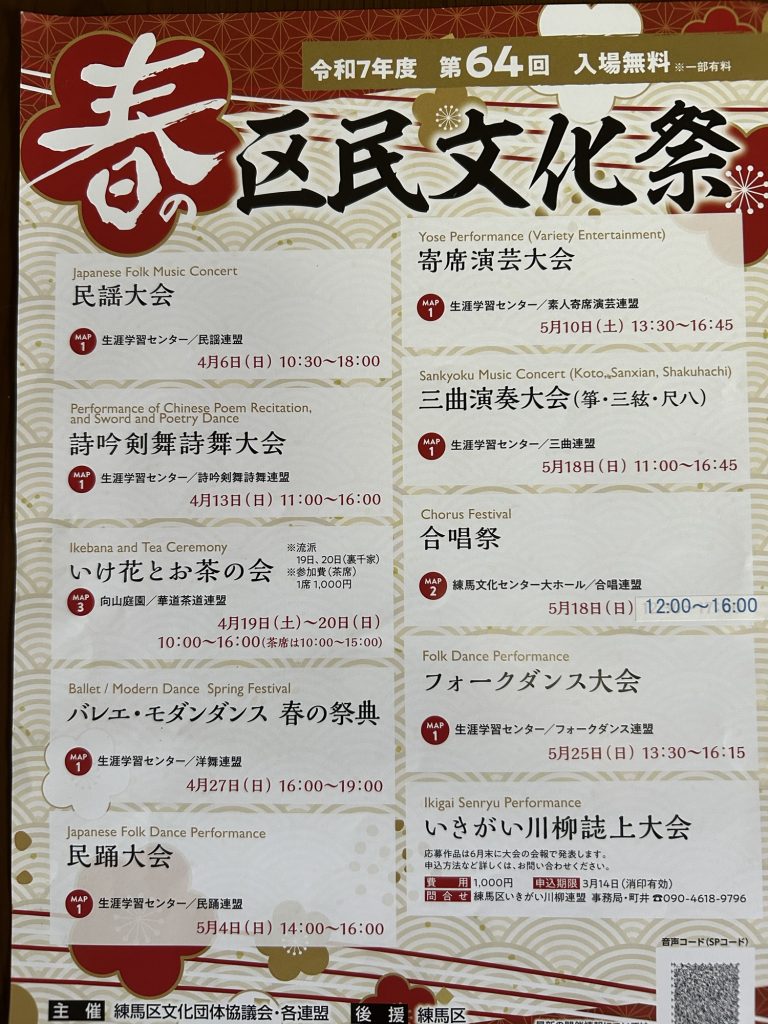 令和7年度 第64回 入場無料 ※一部有料
春の区民文化祭
Japanese Folk Music Concert
民謡大会
MAP 1 生涯学習センター／民謡連盟
4月6日(日) 10:30〜18:00
Performance of Chinese Poem Recitation,
and Sword and Poetry Dance
詩吟剣舞詩舞大会
MAP 1 生涯学習センター／詩吟剣舞詩舞連盟
4月13日(日) 11:00〜16:00
Ikebana and Tea Ceremony
いけ花とお茶の会
※流派
19日、20日(裏千家)
※参加費(茶席)
1席 1,000円
MAP 3 向山庭園／華道茶道連盟
4月19日(土)〜20日(日)
10:00〜16:00(茶席は10:00〜15:00)
Ballet / Modern Dance Spring Festival
バレエ・モダンダンス 春の祭典
MAP 1 生涯学習センター／洋舞連盟
4月27日(日) 16:00〜19:00
Japanese Folk Dance Performance
民踊大会
MAP 1 生涯学習センター／民踊連盟
5月4日(日) 14:00〜16:00
Yose Performance (Variety Entertainment)
寄席演芸大会
MAP 1 生涯学習センター／素人寄席演芸連盟
5月10日(土) 13:30〜16:45
Sankyoku Music Concert (Koto, Sanxian, Shakuhachi)
三曲演奏大会(箏・三絃・尺八)
MAP 1 生涯学習センター／三曲連盟
5月18日(日) 11:00〜16:45
Chorus Festival
合唱祭
MAP 2 練馬文化センター大ホール／合唱連盟
5月18日(日) 12:00〜16:00
Folk Dance Performance
フォークダンス大会
MAP 1 生涯学習センター／フォークダンス連盟
5月25日(日) 13:30〜16:15
Ikigai Senryu Performance
いきがい川柳誌上大会
応募作品は6月末に大会の会報で発表します。
申込方法など詳しくは、お問い合わせください。
費用 1,000円 申込期限 3月14日(消印有効)
問合せ 練馬区いきがい川柳連盟 事務局・町井 ☎090-4618-9796
音声コード(SPコード)
主催 練馬区文化団体協議会・各連盟 後援 練馬区